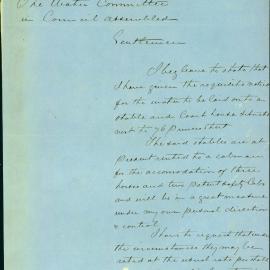 The Water Committee
in Council assembled
Gentlemen
I beg leave to state that
I have given the requisite notice
for the water to be laid on to a
stable and Coach house situated
next to 76 Princes Street
The said stables are at
present rented to a cabman
for the accomodation of three
horses and two patent safety Cabs
and will be in a great measure
under my own personal direction
& control.
I have to request that under
the circumstances they may be
rated at the usual rate per stall